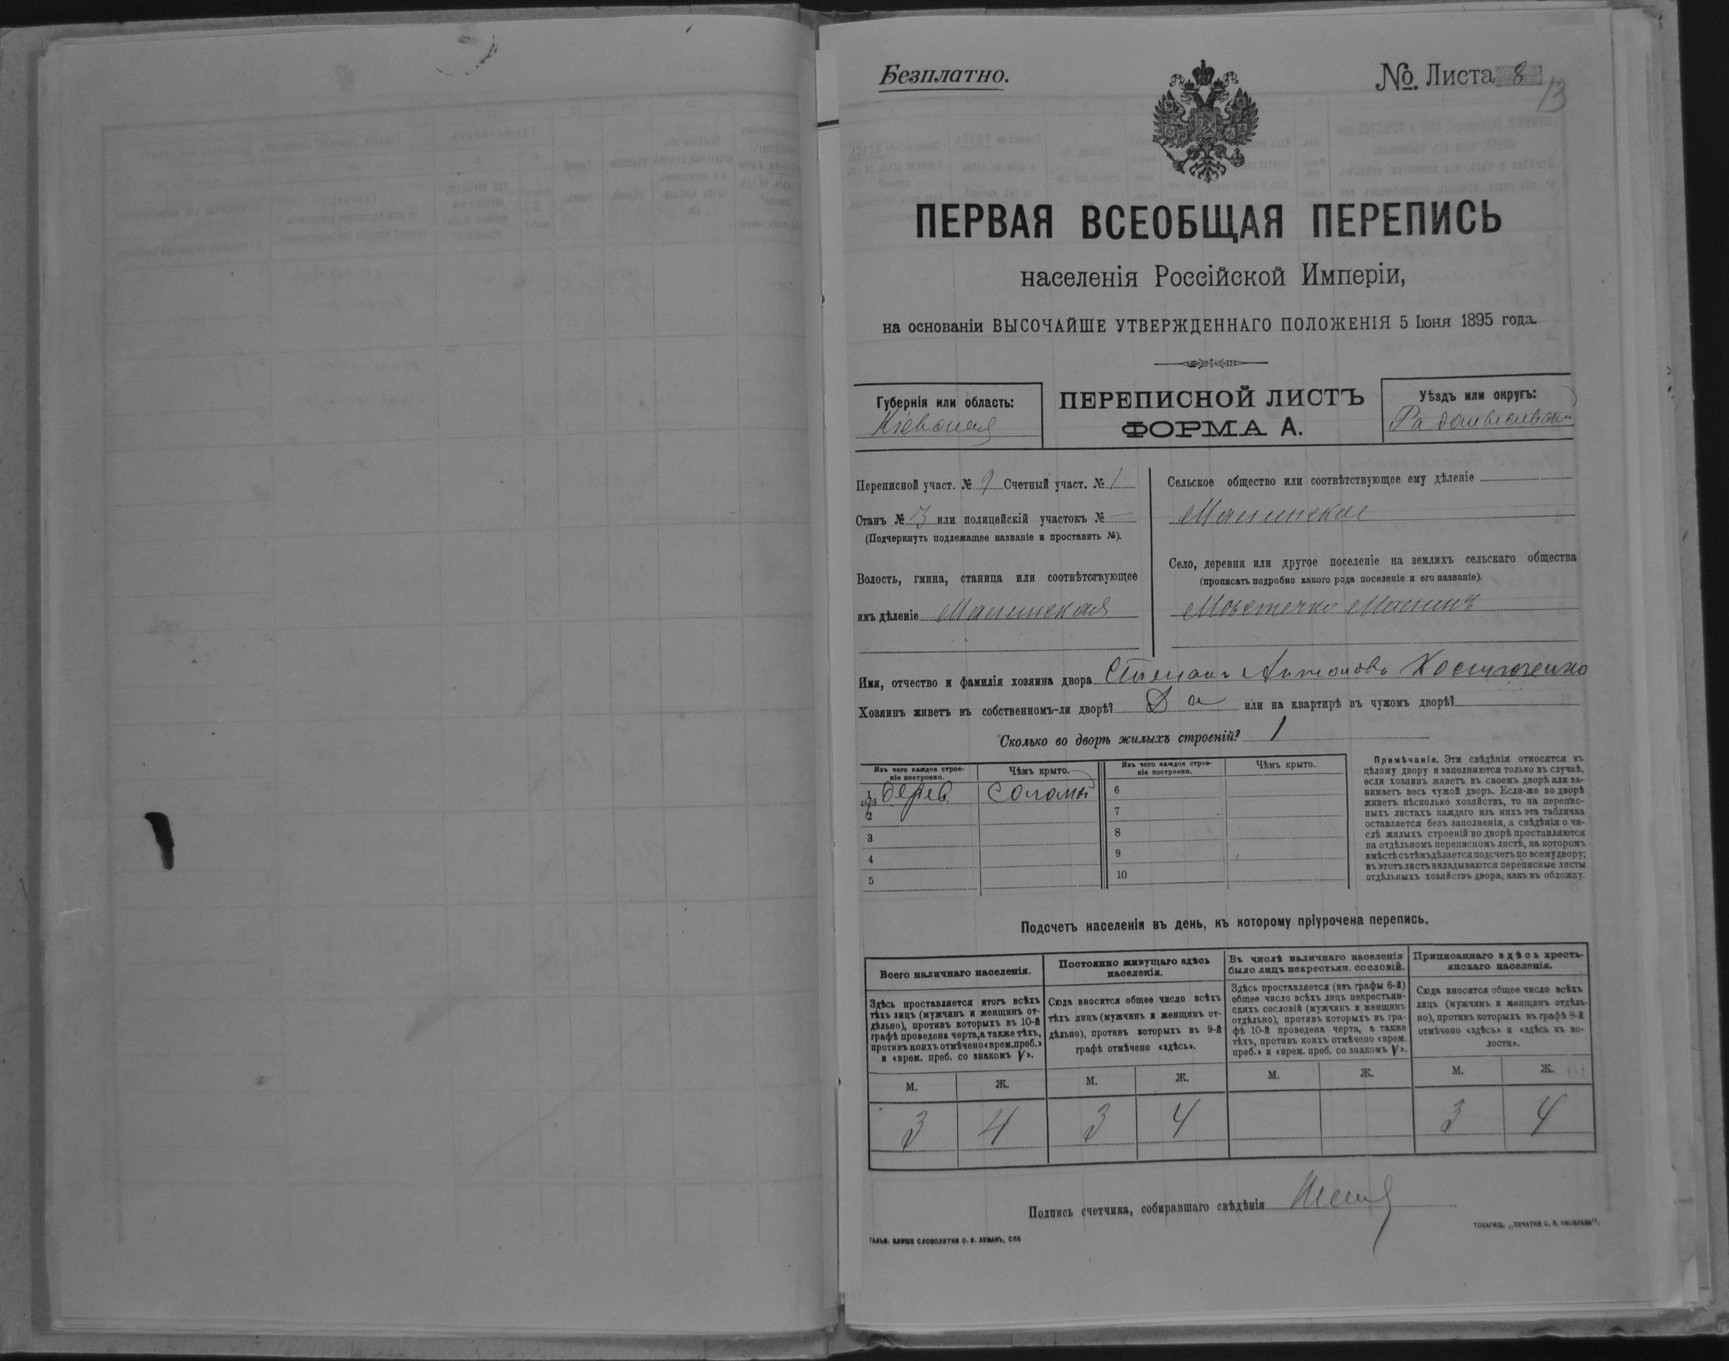 Безплатно.
№. Листа 8
13
ПЕРВАЯ ВСЕОБЩАЯ ПЕРЕПИСЬ
населенія Россійской Имперіи,
на основаніи ВЫСОЧАЙШЕ УТВЕРЖДЕННАГО ПОЛОЖЕНІЯ 5 Іюня 1895 года.
Губернія или область:
Кіевская
ПЕРЕПИСНОЙ ЛИСТЪ
ФОРМА А.
Уѣздъ или округъ:
Радомысльскій
Переписной участ. № 9 Счетный участ. № 1
Станъ № 3 или полицейскій участокъ № —
(Подчеркнуть подлежащее названіе и проставить №).
Волость, гмина, станица или соотвѣтствующее
имъ дѣленіе Малинская
Сельское общество или соотвѣтствующее ему дѣленіе
Малинское
Село, деревня или другое поселеніе на земляхъ сельскаго общества
(прописать подробно какого рода поселеніе и его названіе).
Мѣстечко Малинъ
Имя, отчество и фамилія хозяина двора Степанъ Антоновъ Костюченко
Хозяинъ живетъ въ собственномъ-ли дворѣ? Да или на квартирѣ въ чужомъ дворѣ?
Сколько во дворѣ жилыхъ строеній? 1
Изъ чего каждое строе-
ніе построено.
Чѣмъ крыто.
Изъ чего каждое строе-
ніе построено.
Чѣмъ крыто.
1 изъ дерев. соломы 6
2 7
3 8
4 9
5 10
Примѣчаніе. Эти свѣдѣнія относятся къ
цѣлому двору и заполняются только въ случаѣ,
если хозяинъ живетъ въ своемъ дворѣ или за-
нимаетъ весь чужой дворъ. Если-же во дворѣ
живетъ нѣсколько хозяйствъ, то на перепис-
ныхъ листахъ каждаго изъ нихъ эта табличка
оставляется безъ заполненія, а свѣдѣнія о чи-
слѣ жилыхъ строеній во дворѣ проставляются
на отдѣльномъ переписномъ листѣ, на которомъ
вмѣстѣ съ тѣмъ дѣлается подсчетъ по всему двору;
въ этотъ листъ вкладываются переписные листы
отдѣльныхъ хозяйствъ двора, какъ въ обложку.
Подсчетъ населенія въ день, къ которому пріурочена перепись.
Всего наличнаго населенія.
Здѣсь проставляется итогъ всѣхъ
тѣхъ лицъ (мужчинъ и женщинъ от-
дѣльно), противъ которыхъ въ 10-й
графѣ проведена черта, а также тѣхъ,
противъ коихъ отмѣчено «врем. преб.»
и «врем. преб. со знакомъ V».
Постоянно живущаго здѣсь
населенія.
Сюда вносится общее число всѣхъ
тѣхъ лицъ (мужчинъ и женщинъ от-
дѣльно), противъ которыхъ въ 9-й
графѣ отмѣчено «здѣсь».
Въ числѣ наличнаго населенія
было лицъ некрестьян. сословій.
Здѣсь проставляется (изъ графы 6-й)
общее число всѣхъ лицъ некрестьян-
скихъ сословій (мужчинъ и женщинъ
отдѣльно), противъ которыхъ въ гра-
фѣ 10-й проведена черта, а также
тѣхъ, противъ коихъ отмѣчено «врем.
преб.» и «врем. преб. со знакомъ V».
Приписаннаго здѣсь кресть-
янскаго населенія.
Сюда вносится общее число всѣхъ
лицъ (мужчинъ и женщинъ отдѣль-
но), противъ которыхъ въ графѣ 8-й
отмѣчено «здѣсь» и «здѣсь въ во-
лости».
М. Ж. М. Ж. М. Ж. М. Ж.
3 4 3 4 3 4
Подпись счетчика, собиравшаго свѣдѣнія
ГАЛЬВ. КЛИШЕ СЛОВОЛИТНИ О. И. ЛЕМАНЪ, СПБ
ТОВАРИЩ. „ПЕЧАТНЯ С. П. ЯКОВЛЕВА“.